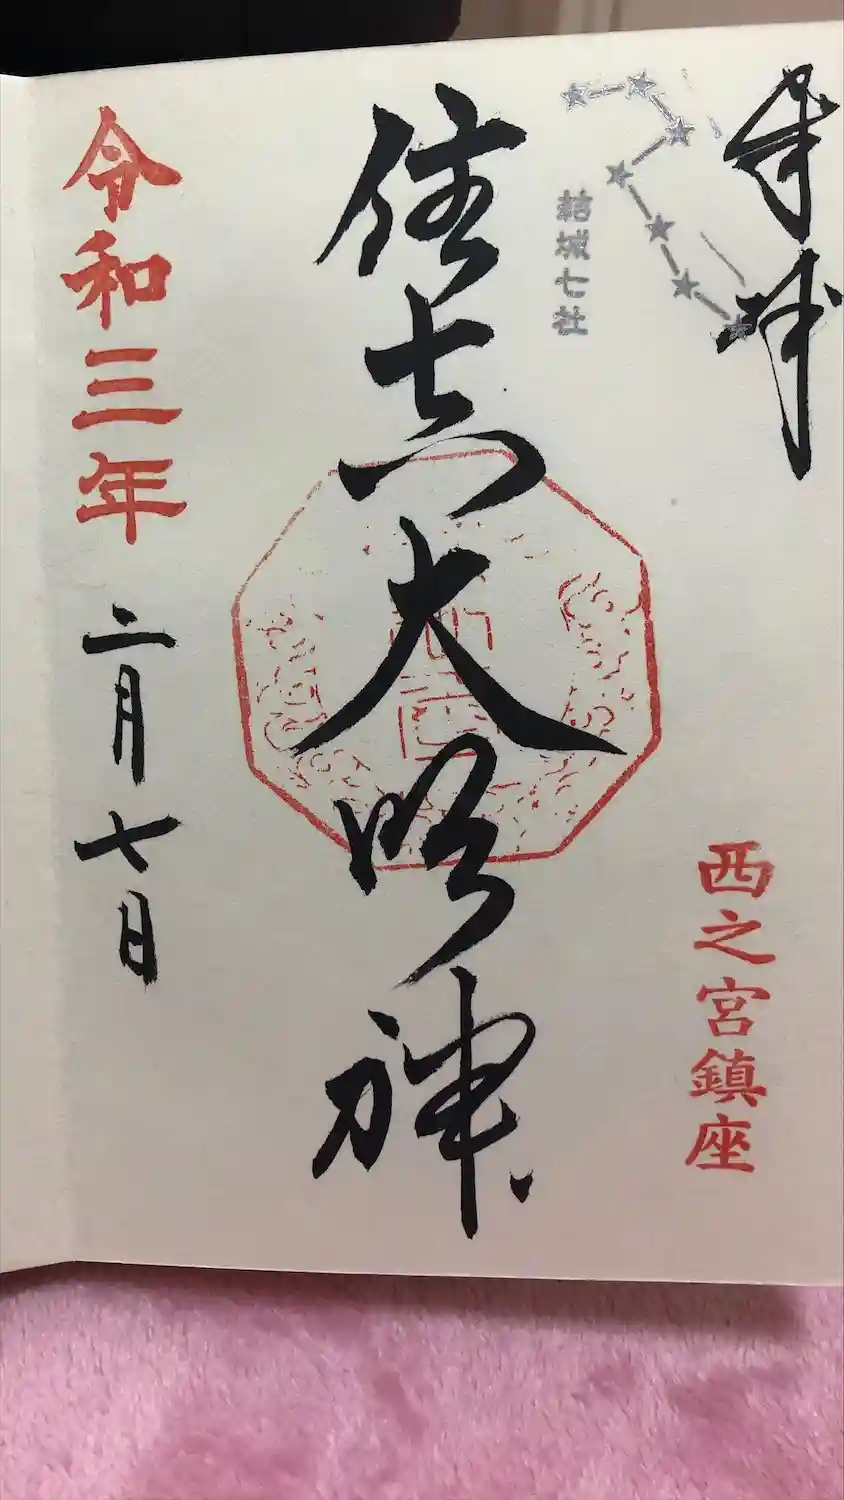 奉拝
結城七社
西之宮鎮座
住吉大明神
令和三年二月七日